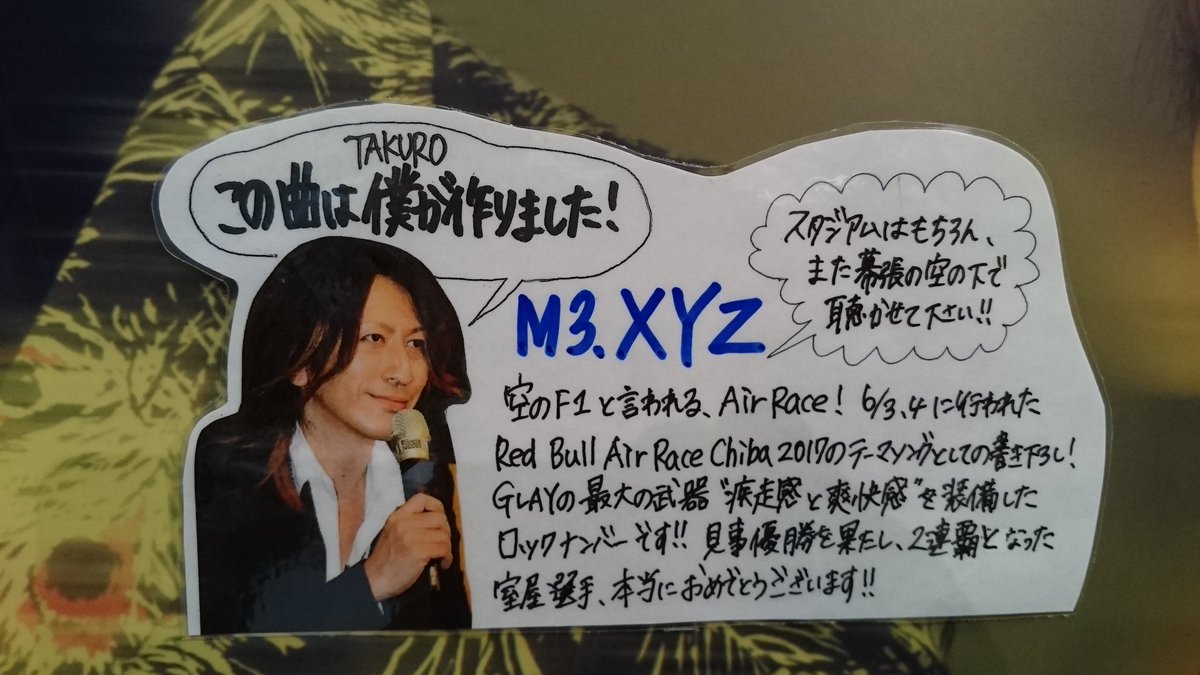 TAKURO
この曲は僕が作りました!
スタジアムはもちろん、
また幕張の空の下で
聴かせて下さい!!
M3.XYZ
空のF1と言われる、Air Race! 6/3,4に行われた
Red Bull Air Race Chiba 2017のテーマソングとしての書き下ろし!
GLAYの最大の武器"疾走感と爽快感"を装備した
ロックナンバーです!! 見事優勝を果たし、2連覇となった
室屋選手、本当におめでとうございます!!